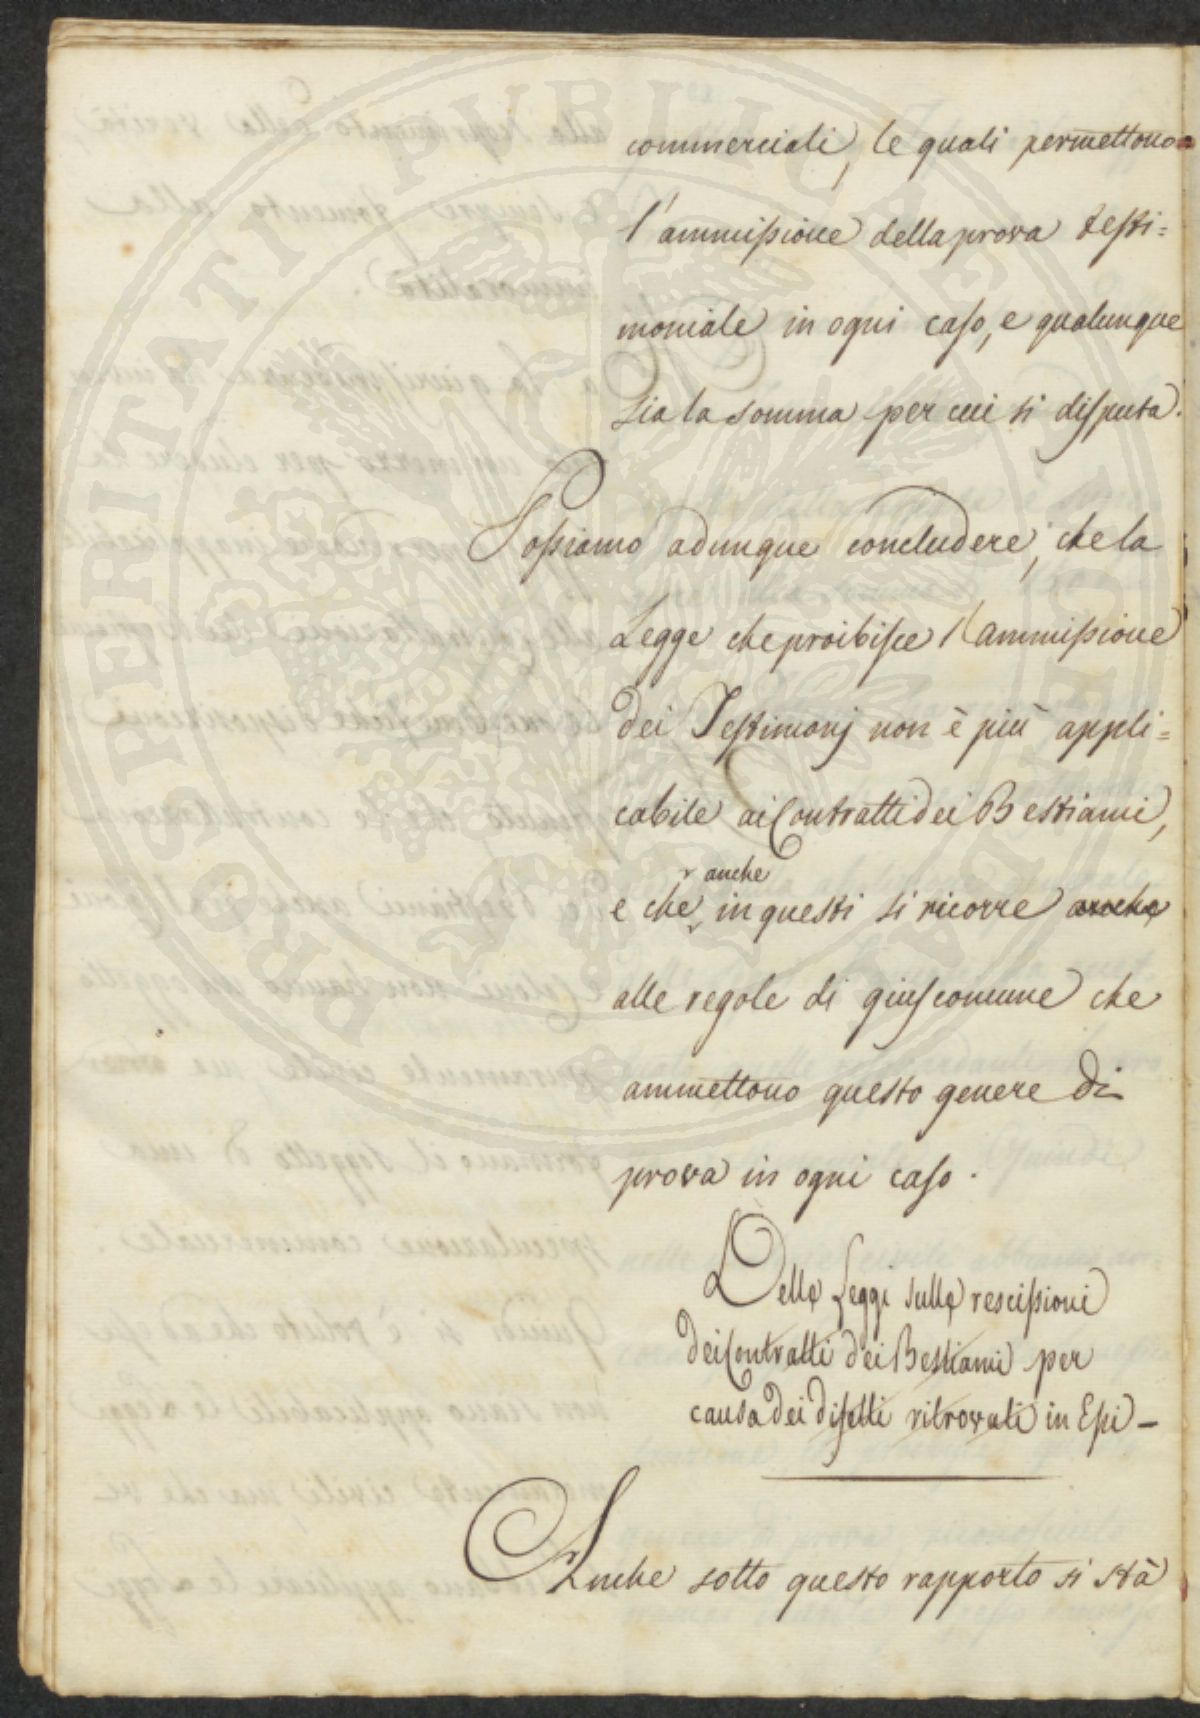 commerciali, le quali permettono
l'ammissione della prova testi=
moniale in ogni caso, e qualunque
sia la somma per cui si disputa.
Possiamo adunque concludere, che la
Legge che proibisce l'ammissione
dei Testimonj non è più appli=
cabile ai Contratti dei Bestiami,
anche
e che in questi si ricorre anche
alle regole di gius comune che
ammettono questo genere di
prova in ogni caso.
Delle Leggi sulle rescissioni
dei Contratti dei Bestiami per
causa dei difetti ritrovati in Essi —
Anche sotto questo rapporto si stà
PROSPERITATI PUBLICAE AUGENDAE